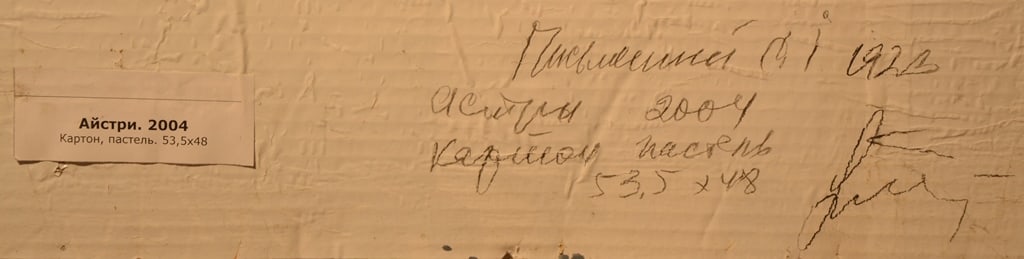 Айстри. 2004
Картон, пастель. 53,5х48
Письменний 1922
астри 2004
картон пастель
53,5 х 48